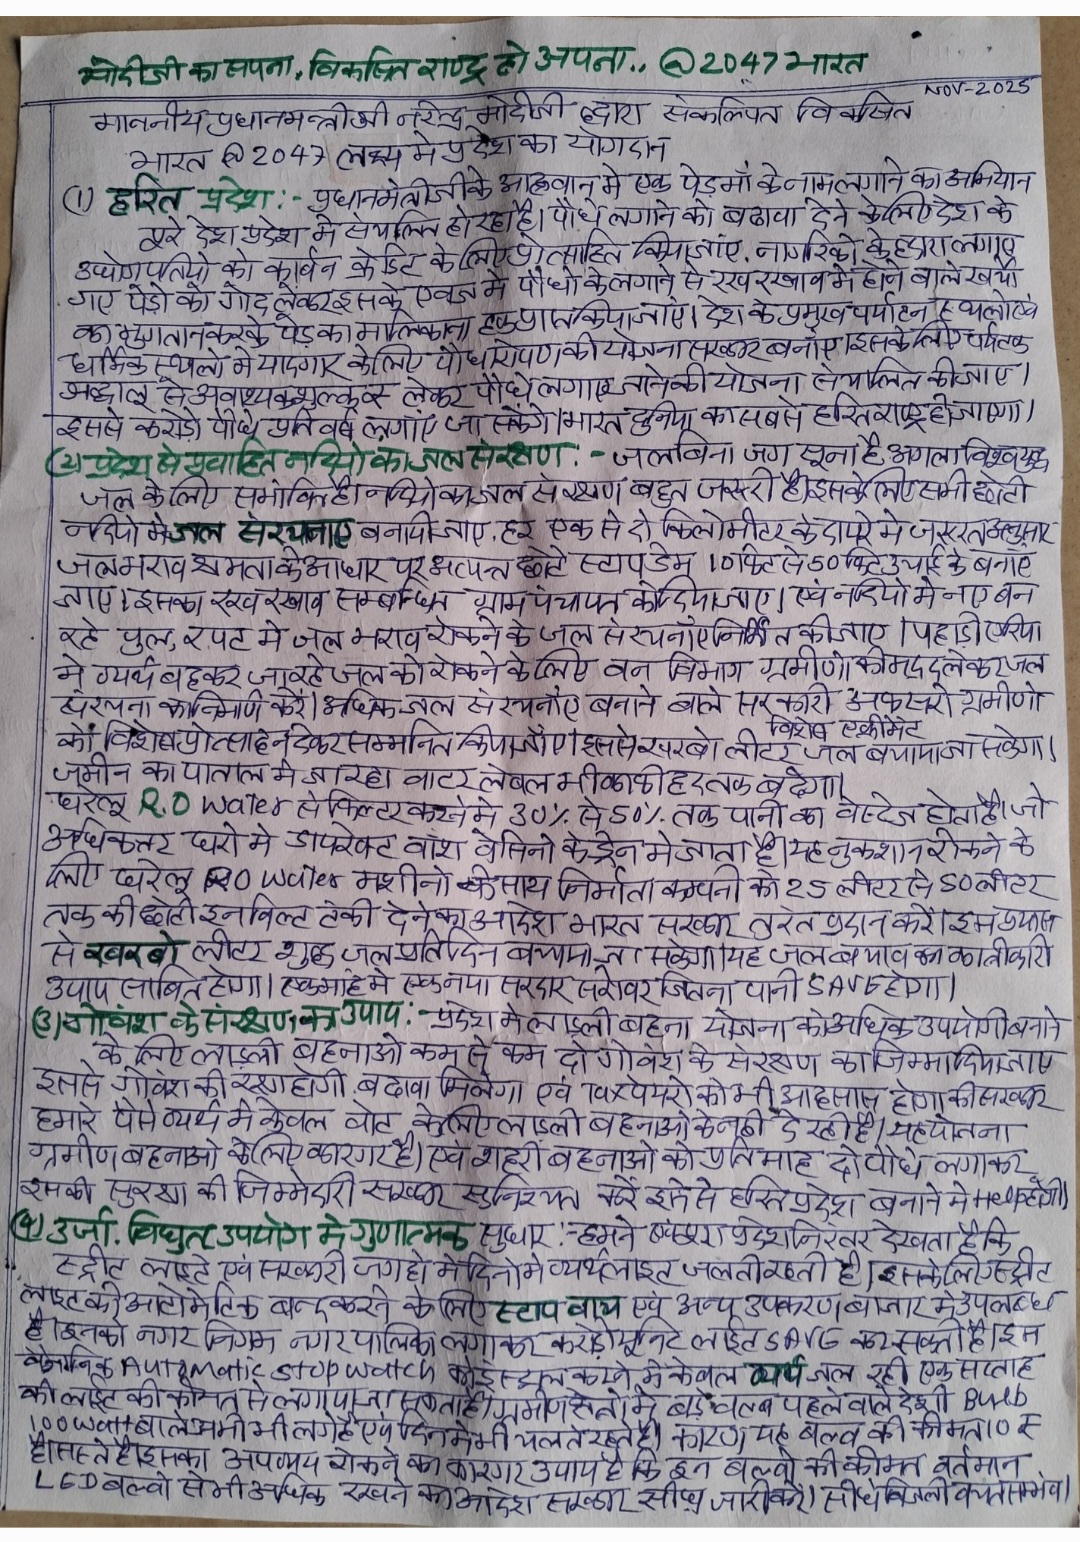 मोदीजी का सपना, विकसित राष्ट्र हो अपना.. @2047 भारत
NOV-2025
माननीय प्रधानमन्त्रीजी नरेन्द्र मोदीजी द्वारा संकल्पित विकसित
भारत @2047 लक्ष्य मे प्रदेश का योगदान
(1) हरित प्रदेश:- प्रधानमंत्रीजी के आहवान मे एक पेड़ माँ के नाम लगाने का अभियान
पूरे देश प्रदेश मे संचालित हो रहा है। पौधे लगाने को बढावा देने के लिए देश के
उधोगपतियो को कार्बन क्रेडिट के लिए प्रोत्साहित किया जाए, नागरिको के द्वारा लगाए
गए पेड़ो को गोद लेकर इसके एवज मे पौधो के लगाने से रख रखाव मे होने बाले खर्चो
का भुगतान करके पेड़ का मालिकाना हक प्राप्त किया जाऐ। देश के प्रमुख पर्यटन स्थलो एवं
धार्मिक स्थलो मे यादगार के लिए पौधारोपण की योजना सरकार बनाऐ। इसके लिए पर्यटक
श्रद्धालू से अवश्यक शुल्क लेकर पौधे लगाए जाने की योजना संचालित की जाए।
इससे करोडो पौधे प्रति वर्ष लगाऐ जा सकेंगे। भारत दुनिया का सबसे हरित राष्ट्र हो जाएगा।
(2) प्रदेश से प्रवाहित नदियो का जल संरक्षण:- जल बिना जग सूना है, अगला विश्वयुद्ध
जल के लिए संभावित है। नदियो का जल संरक्षण बहुत जरूरी है। इसके लिए सभी छोटी
नदियो मे जल संरचनाए बनायी जाए. हर एक से दो किलोमीटर के दायरे मे जरूरत अनुसार
जल भराव क्षमता के आधार पर अत्यन्त छोटे स्टाप डेम 10 फिट से 50 फिट उचाई के बनाऐ
जाए। इसका रख रखाव सम्बन्धित ग्राम पंचायत को दिया जाए। एवं नदियो मे नए बन
रहे पुल, रपट मे जल भराव रोकने के जल संरचनाऐ निर्मित की जाए। पहाडी एरिया
मे व्यर्थ बहकर जा रहे जल को रोकने के लिए वन विभाग ग्रमीणो की मदद लेकर जल
संरचना का निर्माण करें। अधिक जल संरचनाऐ बनाने बाले सरकारी अफसरो ग्रमीणो
को विशेष प्रोत्साहन विशेष एक्रीमेंट देकर सम्मनित किया जाऐ। इससे खरबो लीटर जल बचाया जा सकेगा।
जमीन का पाताल मे जा रहा वाटर लेबल भी काफी हद तक बढेगा।
घरेलू R.O Water से फिल्टर करने मे 30% से 50% तक पानी का वेस्टेज होता है। जो
अधिकतर घरो मे डायरेक्ट वॉश वेसिनो के ड्रेन मे जाता है। यह नुकशान रोकने के
लिए घरेलू RO Water मशीनो के साथ निर्माता कम्पनी को 25 लीटर से 50 लीटर
तक की छोटी इनबिल्ट टंकी देने का आदेश भारत सरकार तुरंत प्रदान करें। इस प्रयास
से खरबो लीटर शुद्ध जल प्रतिदिन बचाया जा सकेगा। यह जल बचाव का क्रान्तिकारी
उपाय साबित होगा। एक माह मे एक नया सरदार सरोवर जितना पानी SAVE होगा।
(3) गोवंश के संरक्षण का उपाय:- प्रदेश मे लाड़ली बहना योजना को अधिक उपयोगी बनाने
के लिए लाड़ली बहनाओ कम से कम दो गोवंश के संरक्षण का जिम्मा दिया जाए
इससे गोवंश की रक्षा होगी बढावा मिलेगा एवं Taxपेयरो को भी आहसास होगा की सरकार
हमारे पैसे व्यर्थ मे केवल वोट के लिए लाड़ली बहनाओ के नही दे रही है। यह योजना
ग्रमीण बहनाओ के लिए कारगर है। एवं शहरी बहनाओ को प्रति माह दो पौधे लगाकर
इसकी सुरक्षा की जिम्मेदारी सरकार सुनिश्चत करें इससे हरित प्रदेश बनाने मे Help होगी।
(4) उर्जा. विधुत उपयोग मे गुणात्मक सुधार:- हमने प्रदेश निरंतर देखता है कि
स्ट्रीट लाइटे एवं सरकारी जगहो मे दिनो मे व्यर्थ लाइट जलती रहती है। इसके लिए स्ट्रीट
लाइट की आटोमेटिक बन्द करने के लिए स्टाप वाच एवं अन्य उपकरण बाजार मे उपलब्ध
है। इनको नगर निगम नगर पालिका लगाकर करोडो यूनिट लाईट SAVE कर सकती है। इस
वैज्ञानिक Automatic Stop Watch को इस्तेमाल करने मे केवल व्यर्थ जल रही एक सप्ताह
की लाइट की कीमत से लगाया जा सकता है। ग्रमीण क्षेत्रो मे बड़े वल्व पहले वाले देशी Bulb
100 Watt बाले अभी भी लगे है एवं दिन मे भी चलते रहते है। कारण यह बल्व की कीमत 10 रू
है। सस्ते है। इसका अपव्यय रोकने का कारगर उपाय है कि इन बल्वो की कीमत वर्तमान
LED बल्वो से भी अधिक रखने का आदेश सरकार सीध्र जारी करें। सीधे बिजली बचत सम्भव।